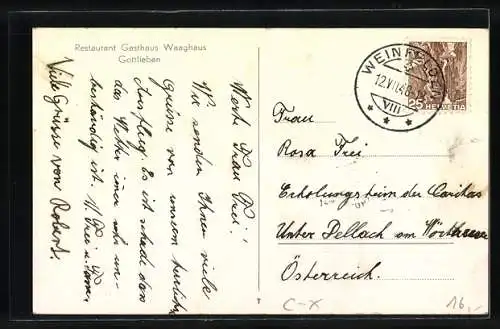 Restaurant Gasthaus Waaghaus
Gottlieben
Werte Frau Frei!
Wir senden Ihnen viele
Grüsse von unserem herrlichen
Ausflug. Es ist schade dass
das Wetter immer sehr un-
beständig ist. M. Frei u.
Viele Grüsse von Robert.
WEINFELDEN
12.VII.48
VIII
25 HELVETIA
Frau
Rosa Frei
Erholungsheim der Caritas
Unter Dellach am Wörthersee
Österreich.
C-X
16,-